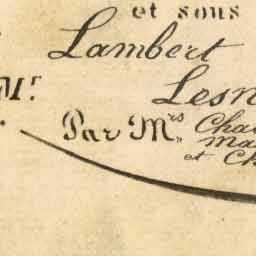 et sous
Lambert
Mr
Lesn
Par Mrs Cha
Ma
et Ch